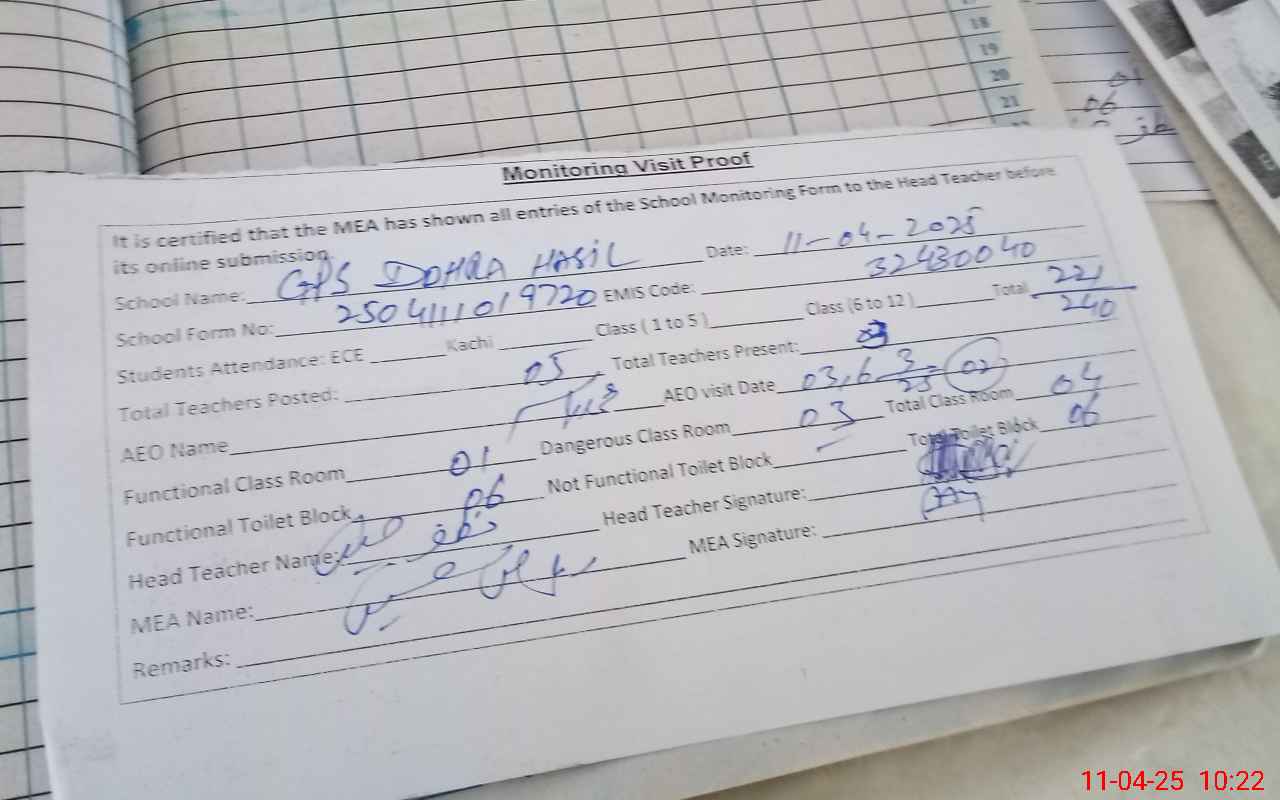 18
19
20
21
01
06
Monitoring Visit Proof
It is certified that the MEA has shown all entries of the School Monitoring Form to the Head Teacher before
its online submission.
School Name: GPS DOHRA HASIL Date: 11-04-2025
School Form No: 2504111019720 EMIS Code: 32430040
Students Attendance: ECE ______ Kachi ______ Class ( 1 to 5 ) ______ Class (6 to 12 ) ______ Total 221/240
Total Teachers Posted: 05 Total Teachers Present: 03
AEO Name AEO visit Date 03, 6 3/25 = 02
Functional Class Room 01 Dangerous Class Room 03 Total Class Room 04
Functional Toilet Block 06 Not Functional Toilet Block Total Toilet Block 06
Head Teacher Name: Head Teacher Signature:
MEA Name: MEA Signature:
Remarks:
11-04-25 10:22